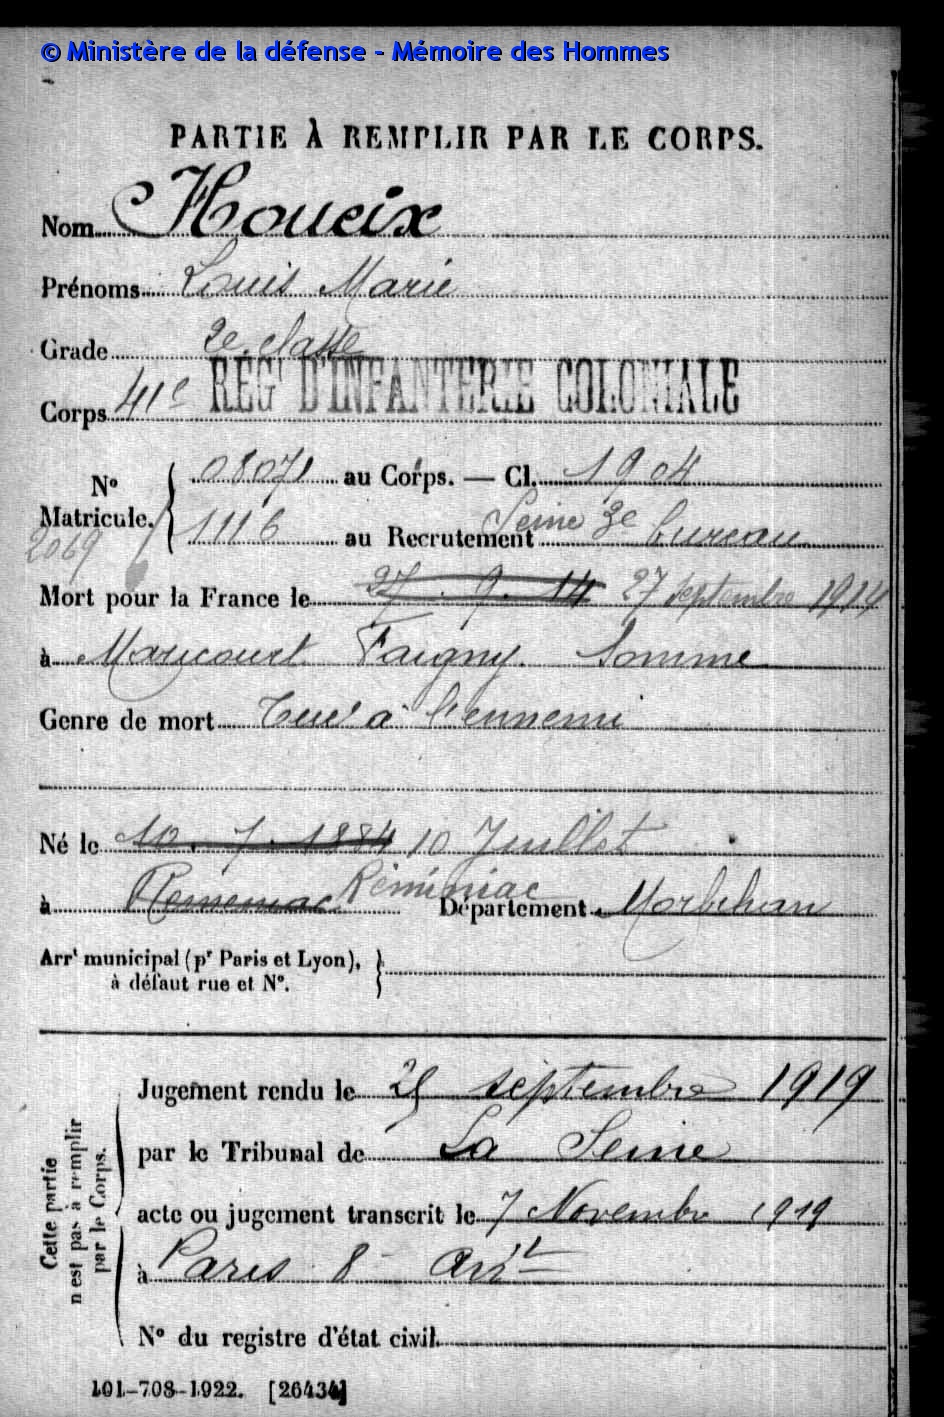 © Ministère de la défense - Mémoire des Hommes
PARTIE À REMPLIR PAR LE CORPS.
Nom Houeix
Prénoms Louis Marie
Grade 2e classe
Corps 41e RÉGt D'INFANTERIE COLONIALE
No Matricule. { 08071 au Corps. — Cl. 1904
1116 au Recrutement Seine 3e bureau
2069
Mort pour la France le 27. 9. 14 27 septembre 1914
à Maricourt Faigny. Somme
Genre de mort Tué à l'ennemi
Né le 10. 7. 1884 10 Juillet
à Remeniac Réminiac Département Morbihan
Arrt municipal (pr Paris et Lyon), à défaut rue et No.
Cette partie n'est pas à remplir par le Corps.
Jugement rendu le septembre 1919
par le Tribunal de La Seine
acte ou jugement transcrit le 7 Novembre 1919
à Paris 8 Arrt
No du registre d'état civil
101-708-1922. [26434]